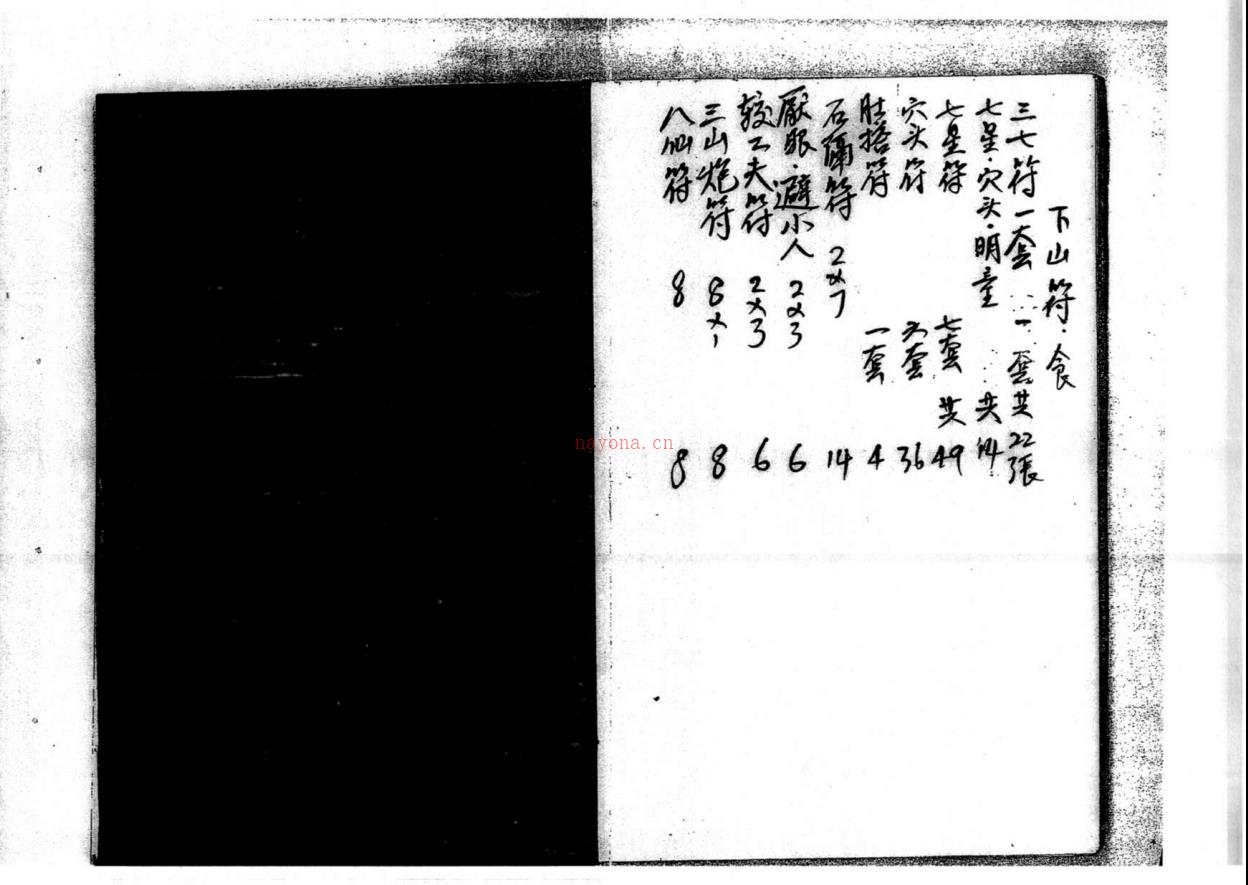 下山符·食
三七符一套 一套共22張
七星·穴头·明堂 共14
七星符 七套 共49
穴头符 六套 36
肚搭符 一套 4
石隔符 2×7 14
厭眼·避小人 2×3 6
較工夫符 2×3 6
三山炮符 8×1 8
八仙符 8 8
nayona.cn